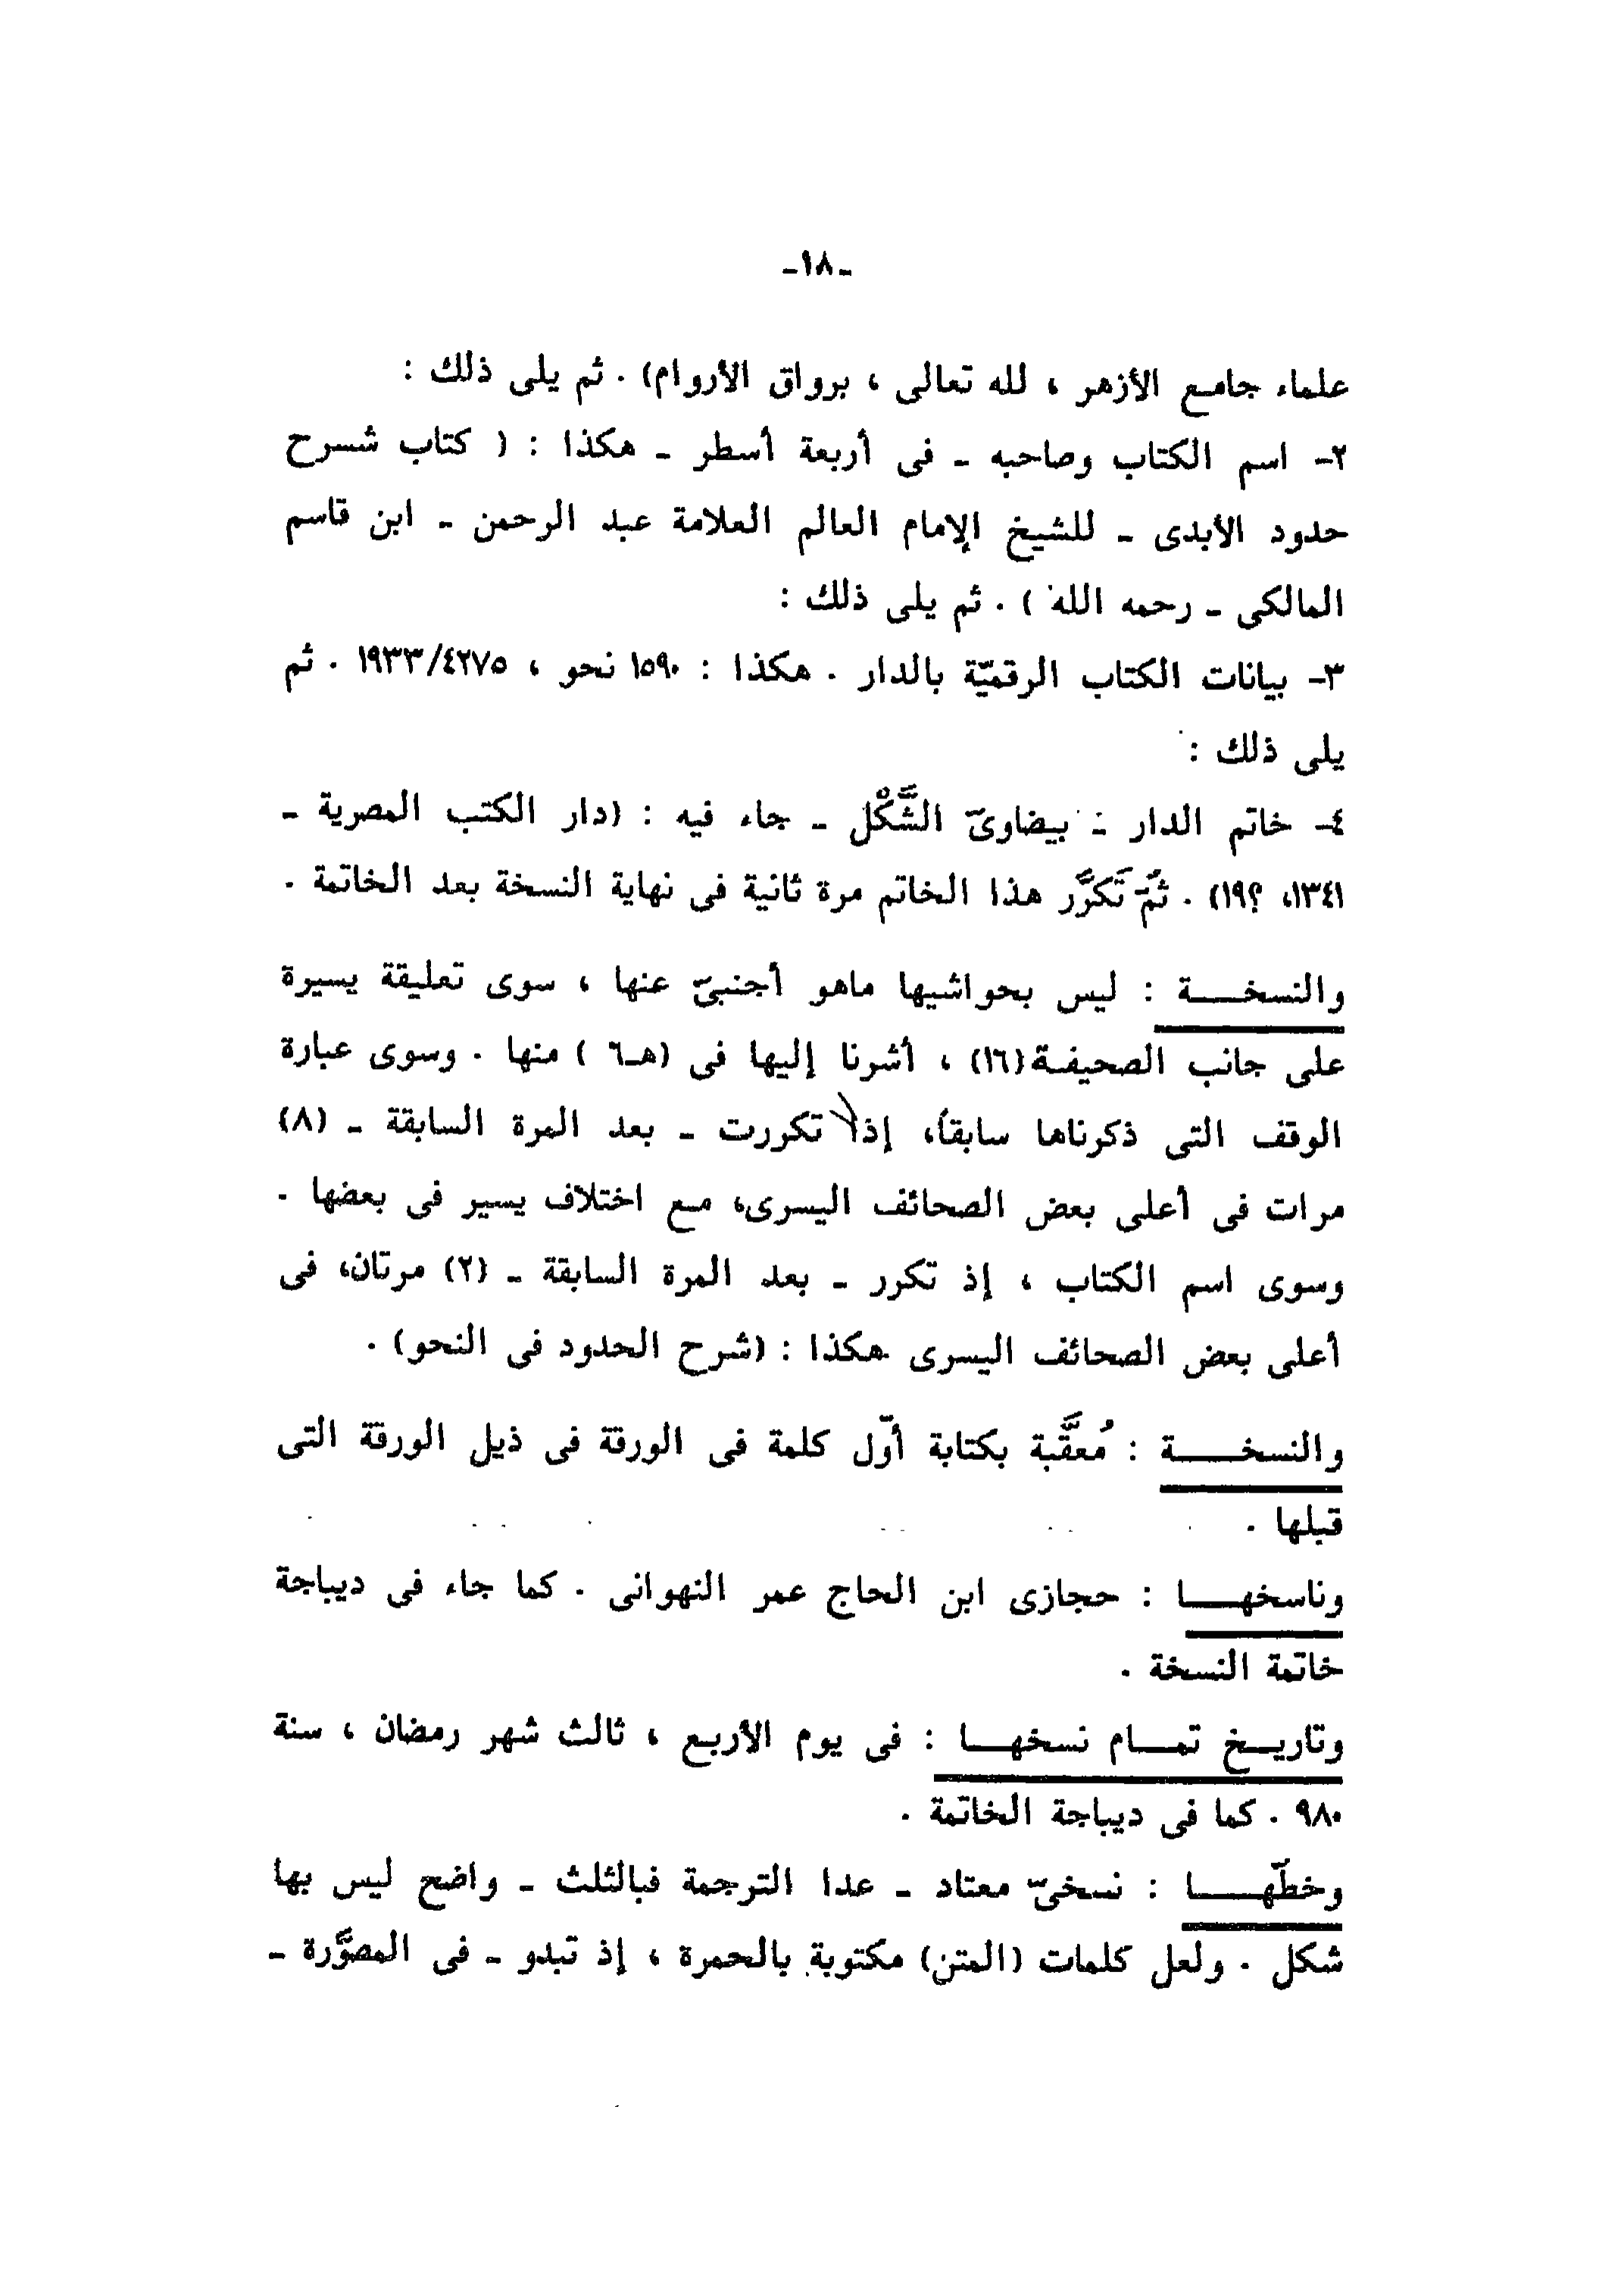 -١٨-
علماء جامع الأزهر ، لله تعالى ، برواق الأروام) . ثم يلى ذلك :
٢- اسم الكتاب وصاحبه - فى أربعة أسطر - هكذا : ( كتاب شسرح
حدود الأبدى - للشيخ الإمام العالم العلامة عبد الرحمن - ابن قاسم
المالكى - رحمه الله ) . ثم يلى ذلك :
٣- بيانات الكتاب الرقميّة بالدار . هكذا : ١٥٩٠ نحو ، ١٩٣٣/٤٢٧٥ . ثم
يلى ذلك :
٤- خاتم الدار - بيضاوىّ الشَّكْل - جاء فيه : (دار الكتب المصرية -
١٣٤١، ؟١٩) . ثمّ تَكرَّر هذا الخاتم مرة ثانية فى نهاية النسخة بعد الخاتمة .
والنسخـــة : ليس بحواشيها ماهو أجنبىّ عنها ، سوى تعليقة يسيرة
على جانب الصحيفة(١٦) ، أشرنا إليها فى (هـ٦ ) منها . وسوى عبارة
الوقف التى ذكرناها سابقاً، إذ تكررت - بعد المرة السابقة - (٨)
مرات فى أعلى بعض الصحائف اليسرى، مع اختلاف يسير فى بعضها .
وسوى اسم الكتاب ، إذ تكرر - بعد المرة السابقة - (٢) مرتان، فى
أعلى بعض الصحائف اليسرى هكذا : (شرح الحدود فى النحو) .
والنسخـــة : مُعقَّبة بكتابة أوّل كلمة فى الورقة فى ذيل الورقة التى
قبلها .
وناسخهـــا : حجازى ابن الحاج عمر النهوانى . كما جاء فى ديباجة
خاتمة النسخة .
وتاريــخ تمــام نسخهــا : فى يوم الأربع ، ثالث شهر رمضان ، سنة
٩٨٠ . كما فى ديباجة الخاتمة .
وخطّهـــا : نسخىّ معتاد - عدا الترجمة فبالثلث - واضح ليس بها
شكل . ولعل كلمات (المتن) مكتوبة بالحمرة ، إذ تبدو - فى المصوَّرة -